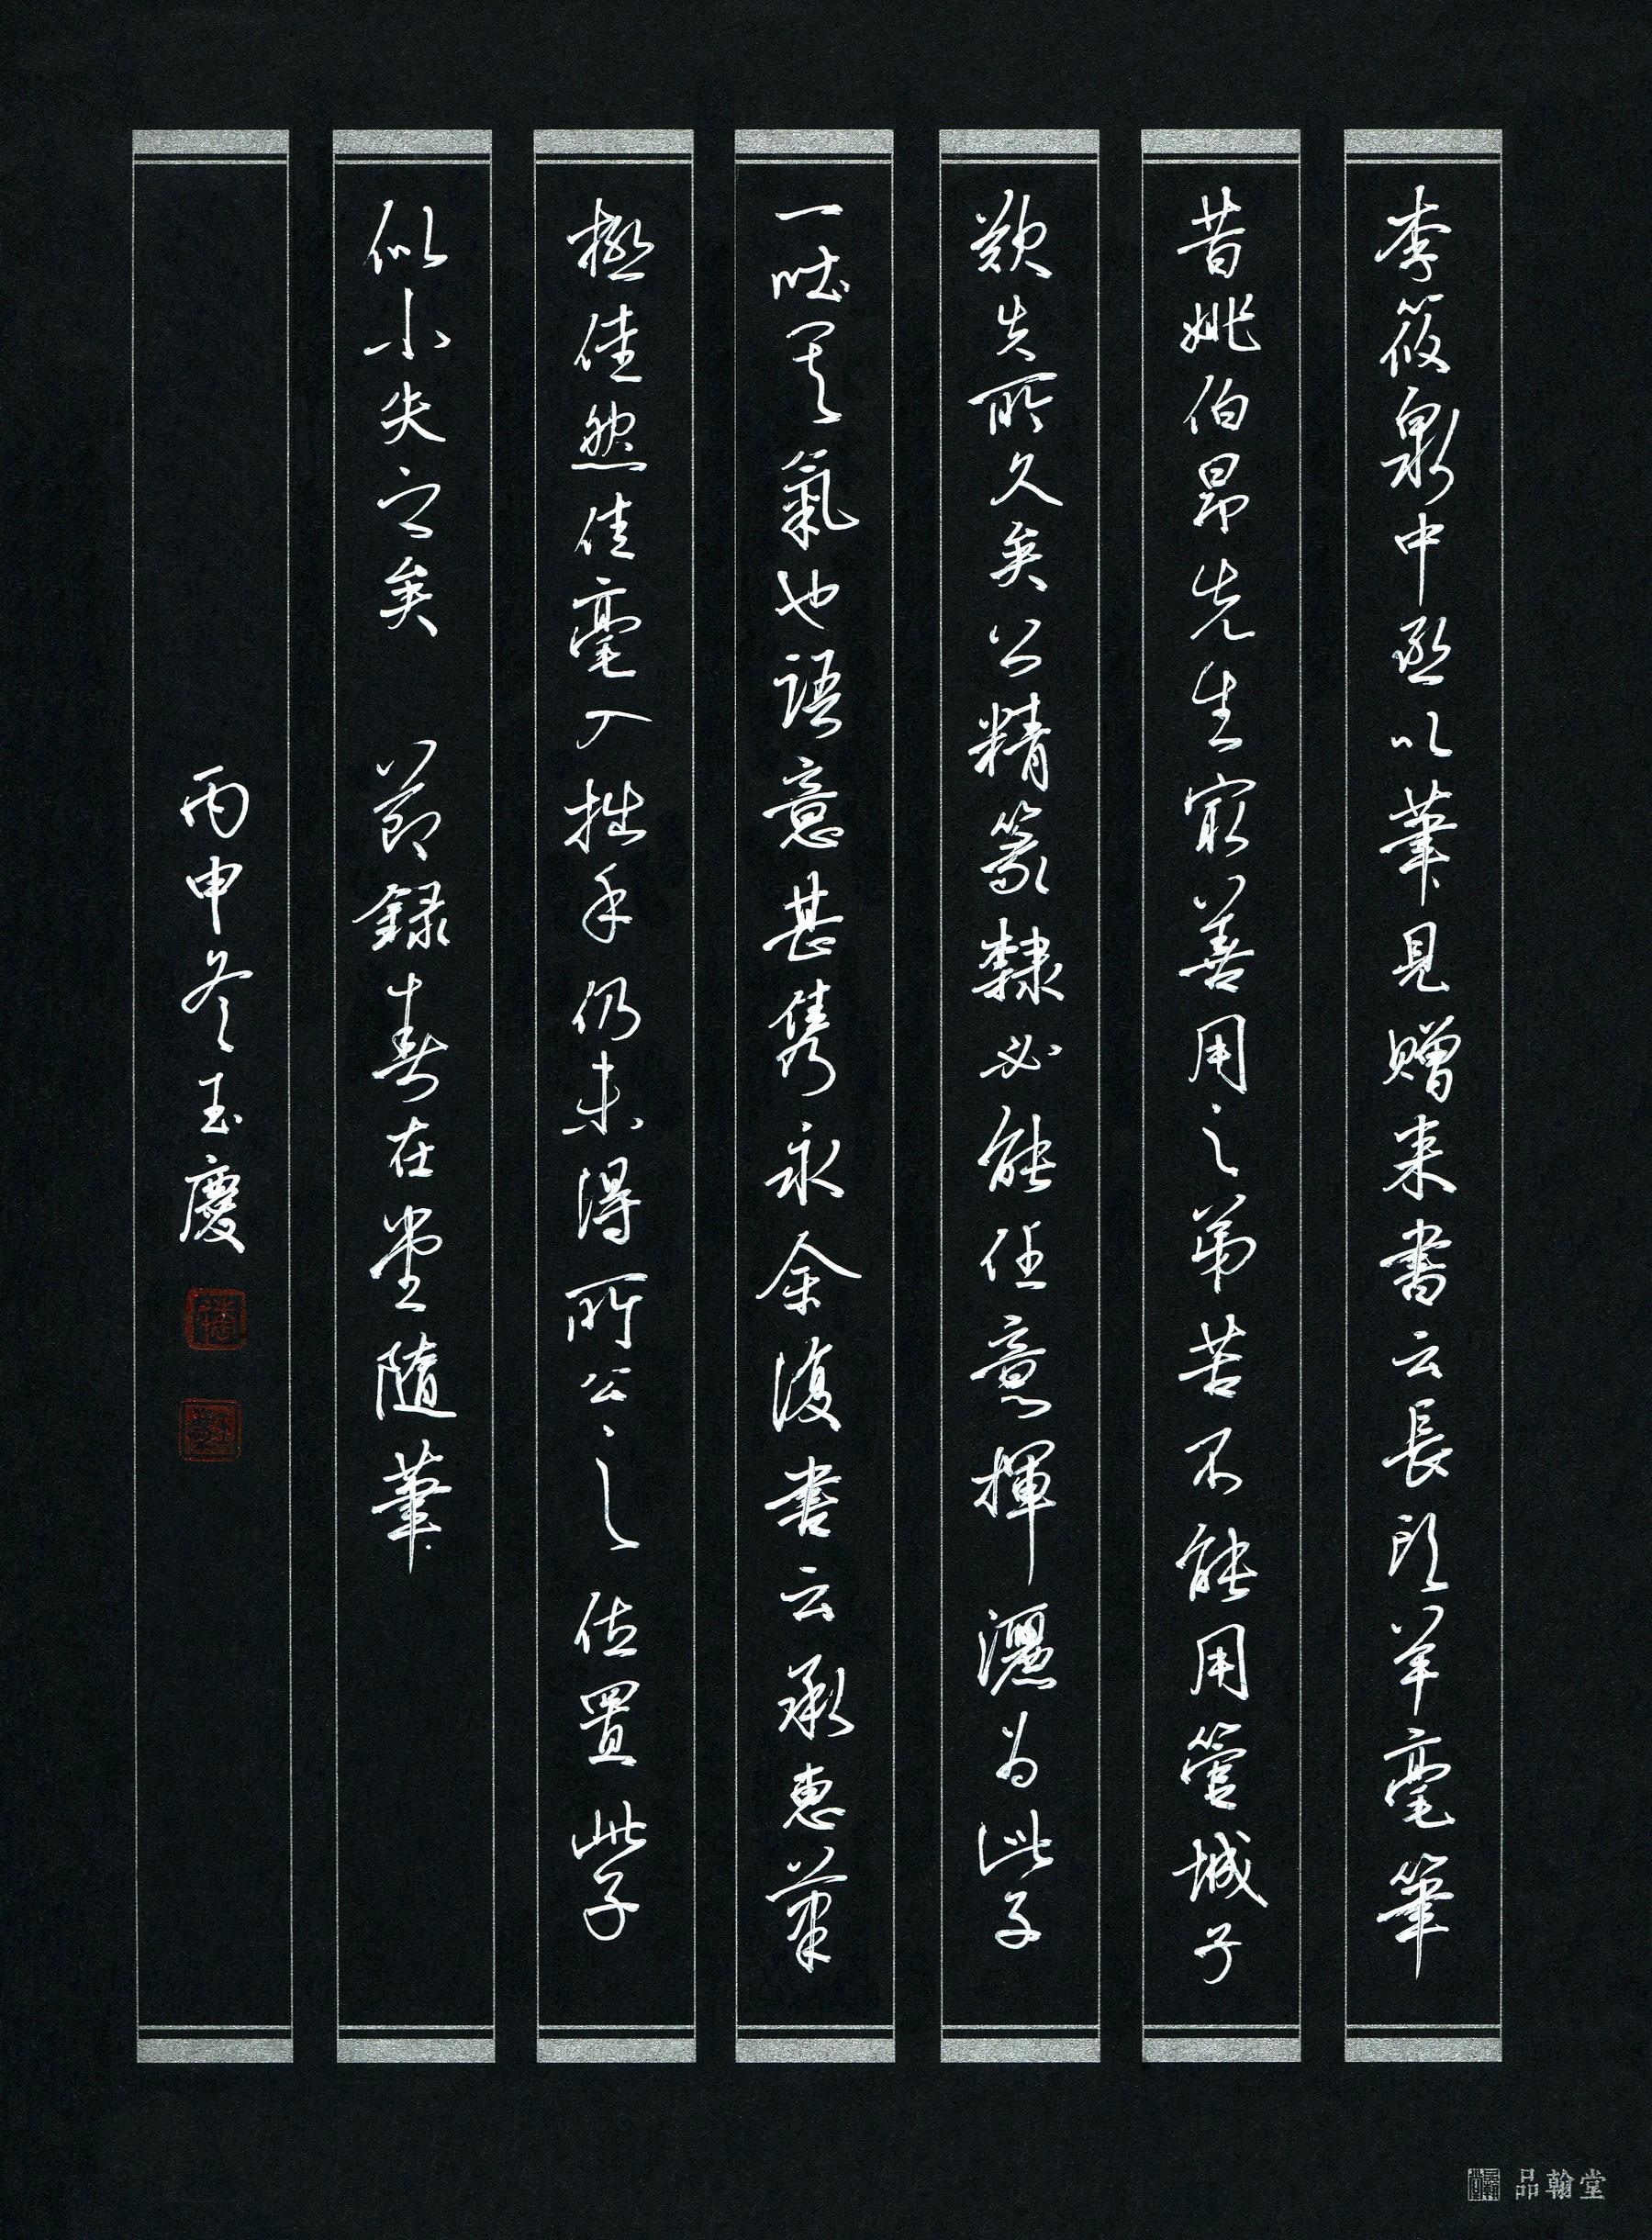 李筱泉中丞以筆見贈来書云長頭羊毫筆
昔姚伯昂先生最善用之弟苦不能用管城子
歎失所久矣公精篆隸必能任意揮灑為此子
一吐不平氣也語意甚雋永余復書云承惠筆
極佳然佳毫入拙手仍未得所公之位置此子
似小失之矣 節録春在堂隨筆
丙申冬玉慶
品翰堂